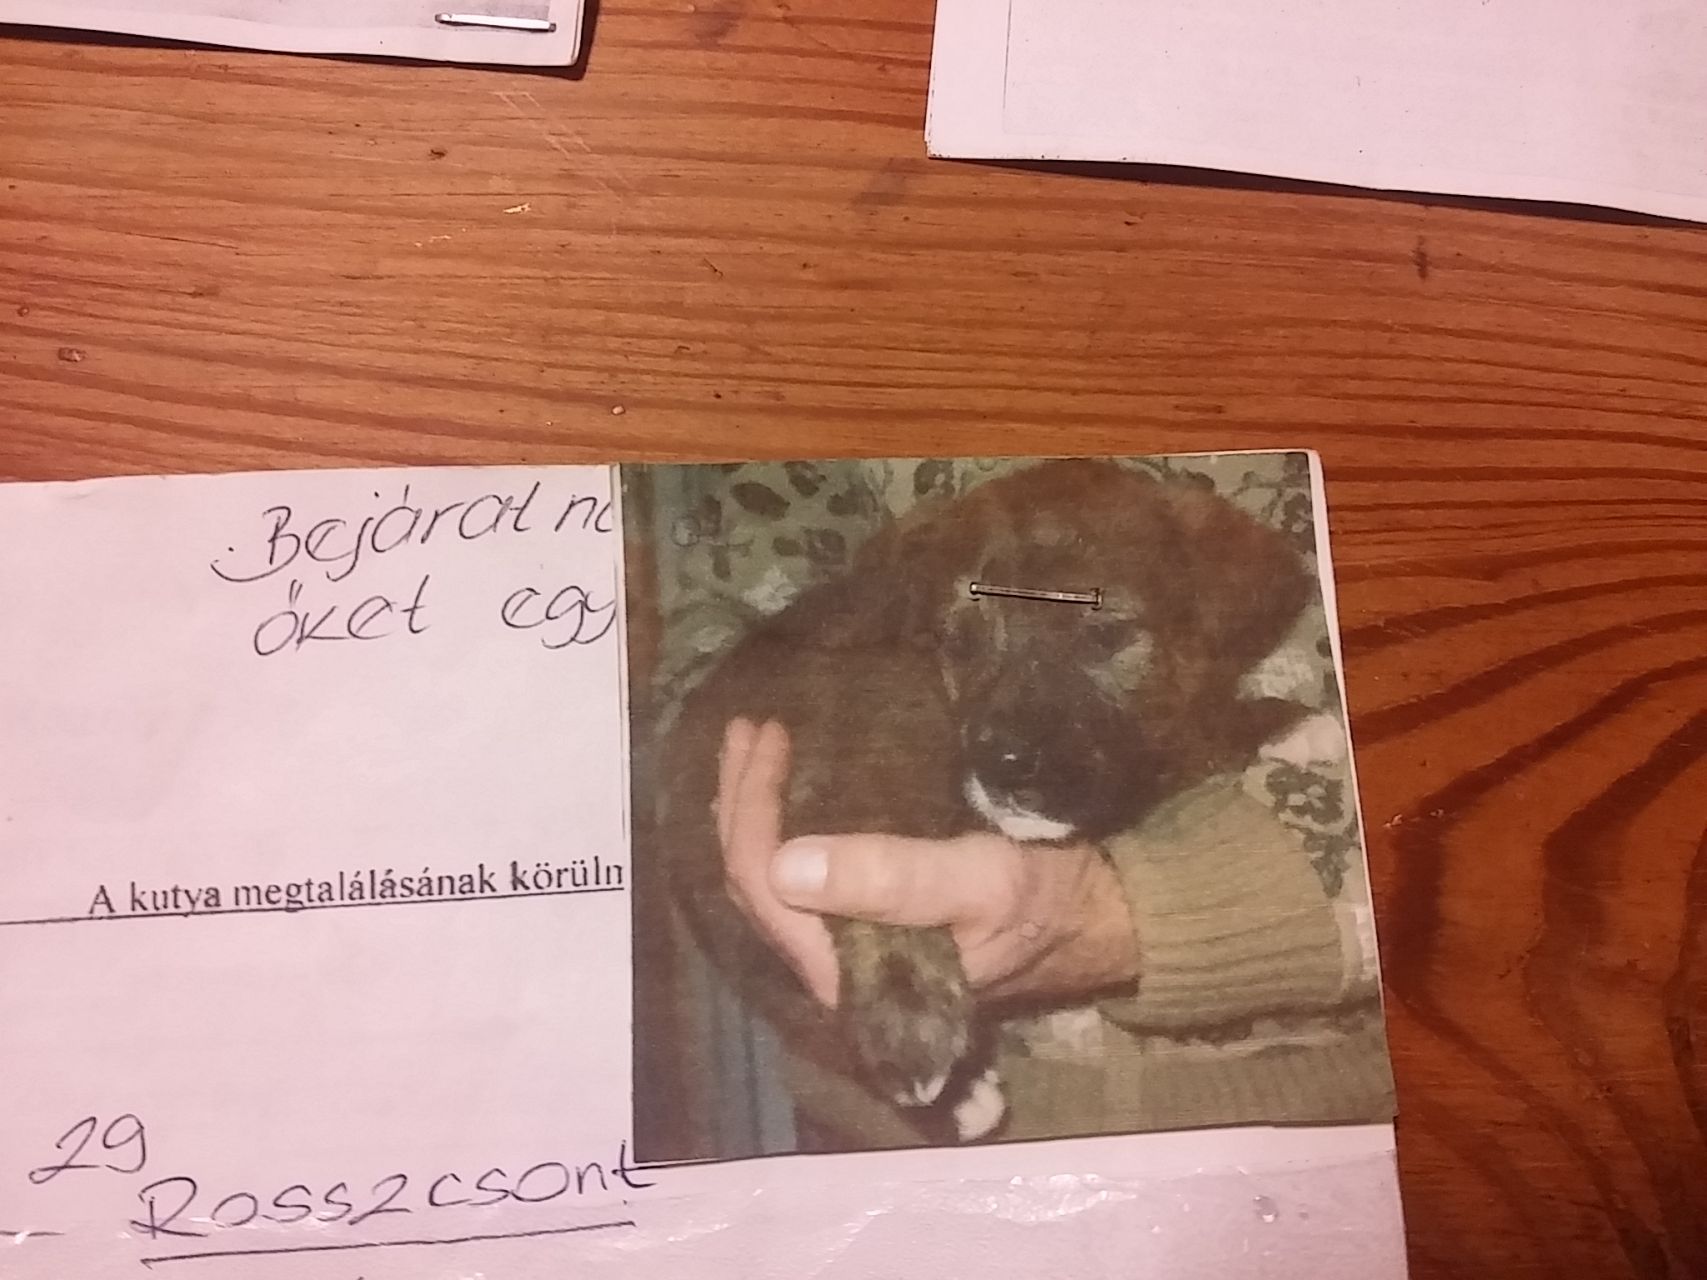 Bejárat
őket egy
A kutya megtalálásának körüln
29
Rosszcsont